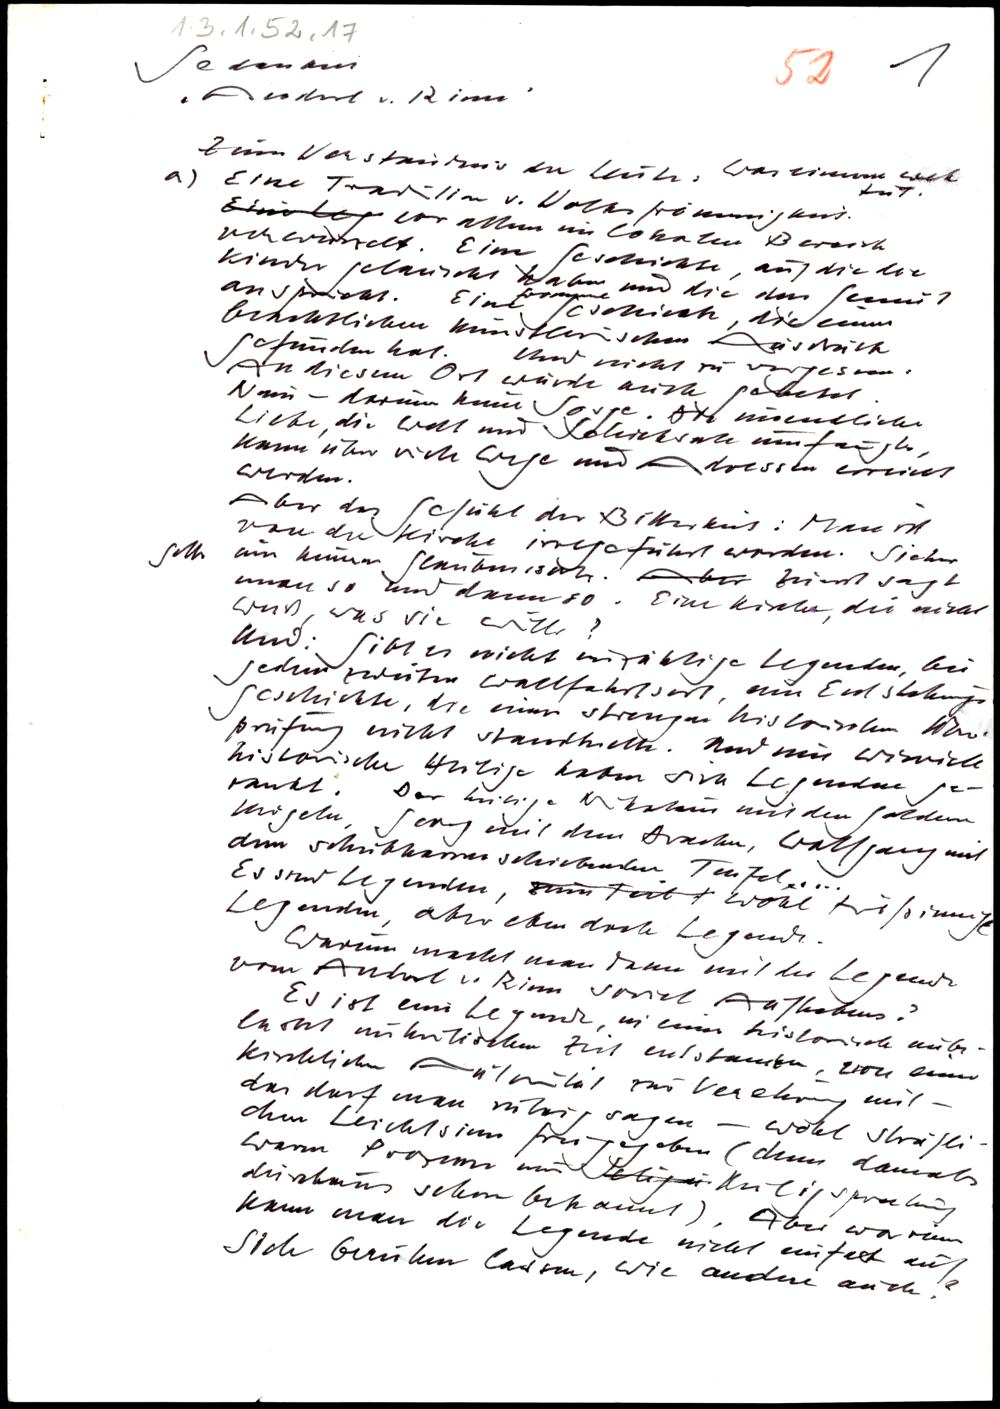 1.3.1.52.17
52 1
Gedanken
"Anderl v. Rinn"
Zum Verständnis der Leute: Was einem weh
tut.
a) Eine Tradition v. Volksfrömmigkeit.
Eine Leg vor allem im lokalen Bereich
verwurzelt. Eine Geschichte, auf die die
Kinder gelauscht haben und die das Gemüt
anspricht. Eine fromme Geschichte, die einen
beachtlichen künstlerischen Ausdruck
gefunden hat. Und nicht zu vergessen:
An diesem Ort wurde auch gebetet.
Nun – darum keine Sorge. Die unendliche
Liebe, die Welt und Schicksale umfängt,
kann über viele Wege und Adressen erreicht
werden.
Aber das Gefühl der Bitterkeit: Man ist
von der Kirche irregeführt worden. Sicher
in keiner Glaubenssache. Aber zuerst sagt
man so und dann so. Eine Kirche, die nicht
weiß, was sie will?
Und: Gibt es nicht unzählige Legenden, bei
jedem zweiten Wallfahrtsort, eine Entstehungs-
geschichte, die einer strengen historischen Über-
prüfung nicht standhielte. Und um wieviele
historische Heilige haben sich Legenden ge-
rankt. Der heilige Nikolaus mit den goldenen
Kugeln, Georg mit dem Drachen, Wolfgang mit
dem schubkarrenschiebenden Teufel.....
Es sind Legenden, zum Teil wohl tiefsinnige
Legenden, aber eben doch Legende.
Warum macht man dann mit der Legende
vom Anderl v. Rinn soviel Aufhebens?
Es ist eine Legende, in einer historisch unbe-
lastet unkritischen Zeit entstanden, von einer
kirchlichen Autorität zur Verehrung mit –
das darf man ruhig sagen – wohl sträfli-
chem Leichtsinn freigegeben (denn damals
waren Prozesse um Heiligsprechung
durchaus schon bekannt). Aber warum
kann man die Legende nicht einfach auf
sich beruhen lassen, wie andere auch?